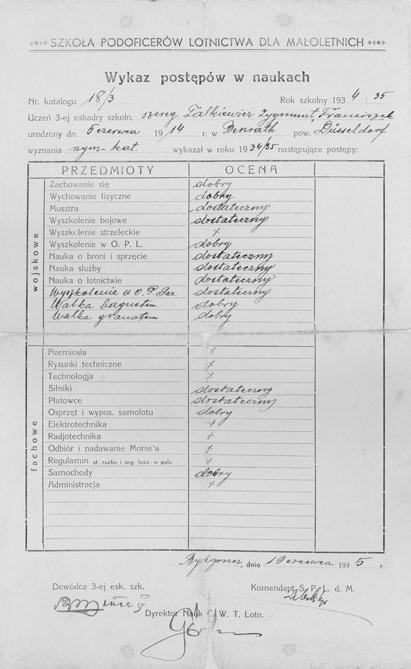 SZKOŁA PODOFICERÓW LOTNICTWA DLA MAŁOLETNICH
Wykaz postępów w naukach
Nr. katalogu 18/3 Rok szkolny 1934/35
Uczeń 3-ej eskadry szkoln. szereg. Falkiewicz Zygmunt, Franciszek
urodzony dn. 5 czerwca 1914 r. w Benrath pow. Düsseldorf
wyznania rzym-kat. wykazał w roku 1934/35 następujące postępy:
PRZEDMIOTY OCENA
wojskowe
Zachowanie się dobry
Wychowanie fizyczne dobry
Musztra dostateczny
Wyszkolenie bojowe dostateczny
Wyszkolenie strzeleckie +
Wyszkolenie w O. P. L. dobry
Nauka o broni i sprzęcie dostateczny
Nauka służby dostateczny
Nauka o lotnictwie dostateczny
Wyszkolenie w O. P. Gaz. dostateczny
Walka bagnetem dobry
Walka granatem dobry
fachowe
Rzemiosła +
Rysunki techniczne +
Technologja +
Silniki dostateczny
Płatowce dostateczny
Osprzęt i wypos. samolotu dobry
Elektrotechnika +
Radjotechnika +
Odbiór i nadawanie Morse'a +
Regulamin sł. ruchu i org. łącz. w polu +
Samochody dobry
Administracja +
Bydgoszcz, dnia 1 czerwca 1935 r.
Dowódca 3-ej esk. szk. Komendant S. P. L. d. M.
Dyrektor Nauk C. W. T. Lotn.